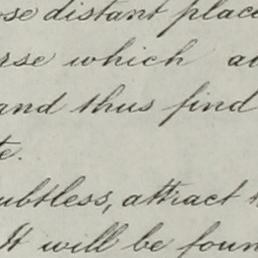 ose distant place
rse which a
and thus find
te.
ubtless, attract t
It will be foun